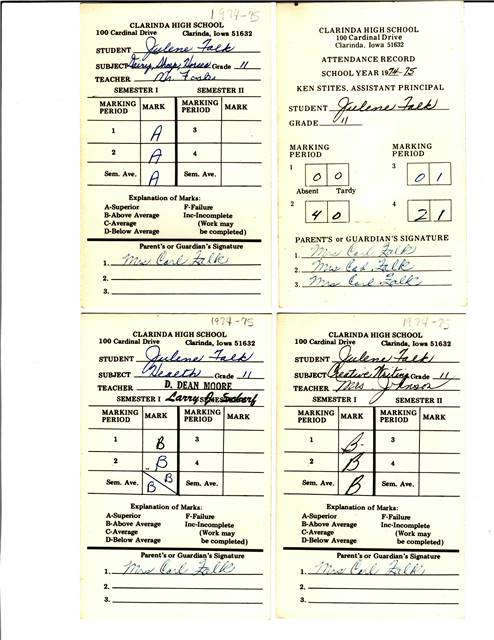 1974-75
CLARINDA HIGH SCHOOL
100 Cardinal Drive Clarinda, Iowa 51632
STUDENT Julene Falk
SUBJECT Dairy, Sheep, Horses Grade 11
TEACHER Mr.
SEMESTER I SEMESTER II
MARKING PERIOD MARK MARKING PERIOD MARK
1 A 3
2 A 4
Sem. Ave. A Sem. Ave.
Explanation of Marks:
A-Superior F-Failure
B-Above Average Inc-Incomplete
C-Average (Work may
D-Below Average be completed)
Parent's or Guardian's Signature
1. Mrs Carl Falk
2.
3.
CLARINDA HIGH SCHOOL
100 Cardinal Drive
Clarinda, Iowa 51632
ATTENDANCE RECORD
SCHOOL YEAR 1974-75
KEN STITES, ASSISTANT PRINCIPAL
STUDENT Julene Falk
GRADE 11
MARKING PERIOD MARKING PERIOD
1 0 0 3 0 1
Absent Tardy
2 4 0 4 2 1
PARENT'S or GUARDIAN'S SIGNATURE
1. Mrs Carl Falk
2. Mrs Carl Falk
3. Mrs Carl Falk
1974-75
CLARINDA HIGH SCHOOL
100 Cardinal Drive Clarinda, Iowa 51632
STUDENT Julene Falk
SUBJECT Health Grade 11
TEACHER D. DEAN MOORE
SEMESTER I Larry
MARKING PERIOD MARK MARKING PERIOD MARK
1 B 3
2 B 4
Sem. Ave. B B Sem. Ave.
Explanation of Marks:
A-Superior F-Failure
B-Above Average Inc-Incomplete
C-Average (Work may
D-Below Average be completed)
Parent's or Guardian's Signature
1. Mrs Carl Falk
2.
3.
1974-75
CLARINDA HIGH SCHOOL
100 Cardinal Drive Clarinda, Iowa 51632
STUDENT Julene Falk
SUBJECT Creative Writing Grade 11
TEACHER Mrs. Johnson
SEMESTER I SEMESTER II
MARKING PERIOD MARK MARKING PERIOD MARK
1 B- 3
2 B 4
Sem. Ave. B Sem. Ave.
Explanation of Marks:
A-Superior F-Failure
B-Above Average Inc-Incomplete
C-Average (Work may
D-Below Average be completed)
Parent's or Guardian's Signature
1. Mrs Carl Falk
2.
3.